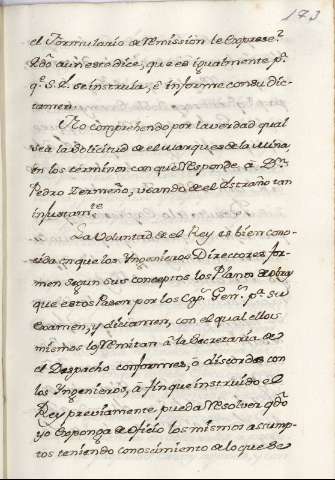 173
el Formulario de remission le exprese?
Y dho aun esto dice, que es igualmente pª
qᵉ S. I. se instrula, è informe con su dic-
tamen.
No comprehendo por la verdad qual
sea la solicitud de el Marques de la Mina,
en los terminos con que responde â Dⁿ
Pedro Zermeño, usando de el extraño tan
injustamᵗᵉ
La Voluntad de el Rey es bien cono-
cida en que los Ingenieros Directores for-
men segun sus conceptos los Planos de obras
que estos pasen por los Capⁿ Genˢ pª su
examen, y dictamen, con el qual ellos
mismos lo remitan â la Secretaria de
el Despacho conformes, ô discordes con
los Ingenieros, â fin que instruido el
Rey previamente, pueda resolver qᵈᵒ
yo exponga de oficio los mismos assump-
tos teniendo conocimiento de lo que se